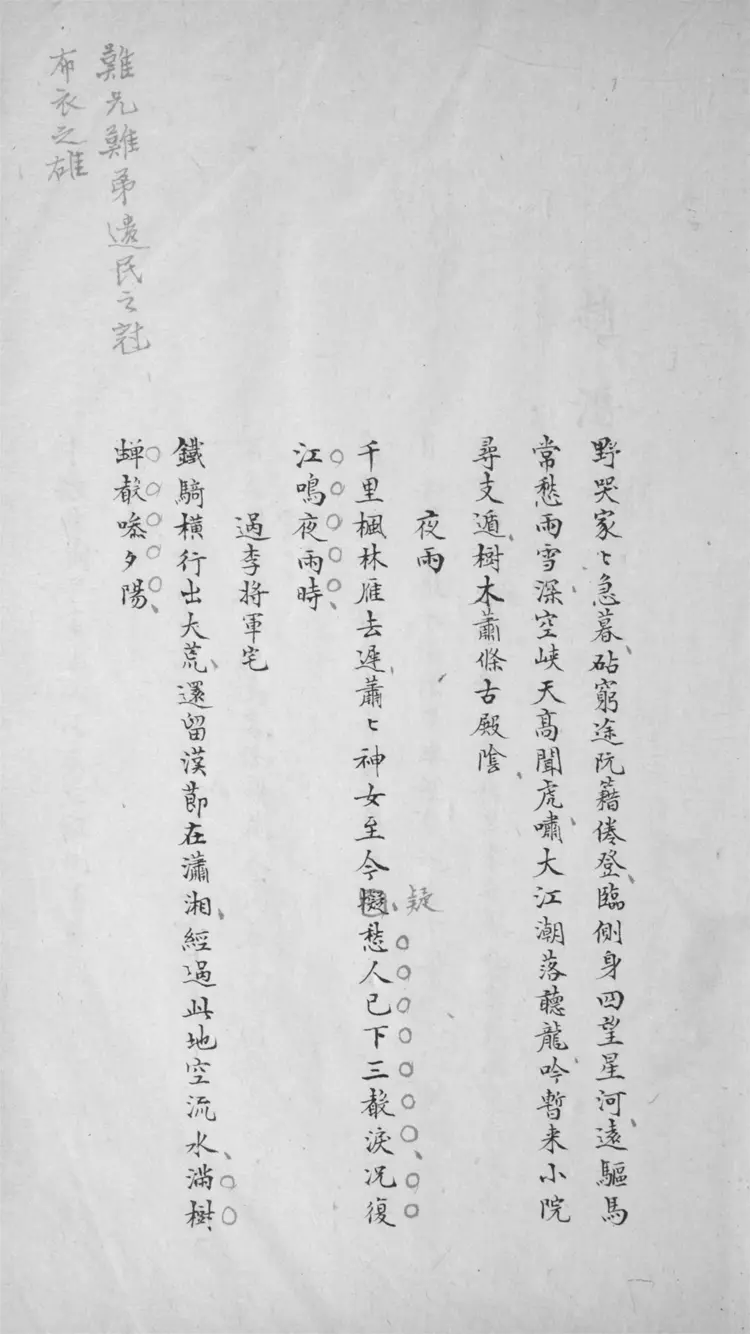 難兄難弟遺民之冠
布衣之雄
野哭家〻急暮砧窮途阮籍倦登臨側身四望星河遠驅馬
常愁雨雪深空峽天高聞虎嘯大江潮落聽龍吟暫来小院
尋支遁樹木蕭條古殿陰
夜雨
疑
千里楓林雁去遲蕭〻神女至今擬愁人已下三聲淚况復
江鳴夜雨時
過李將軍宅
鐵騎橫行出大荒還留漢節在瀟湘經過此地空流水滿樹
蟬聲噪夕陽